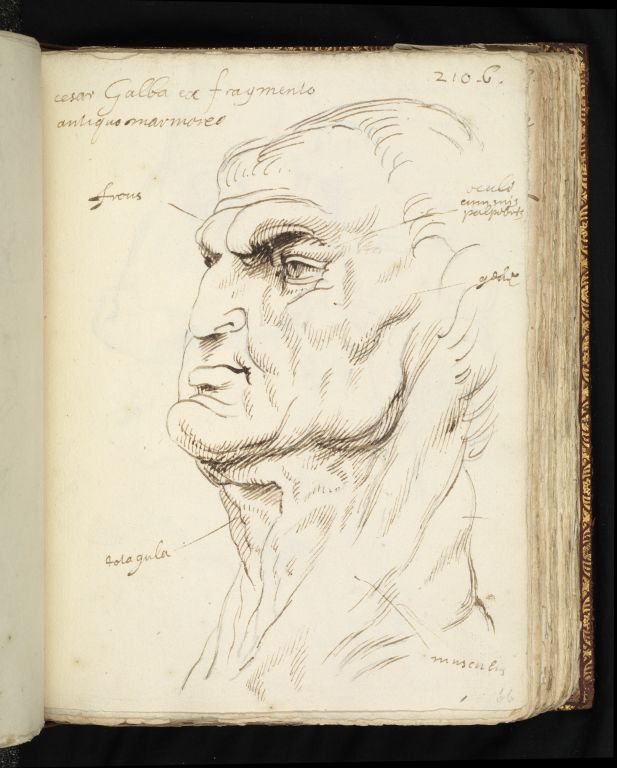 210-6.
cesar Galba ex fragmento
antiquo marmoreo
frons
oculo
cum suis
palpebris
gola gula
musculus
66